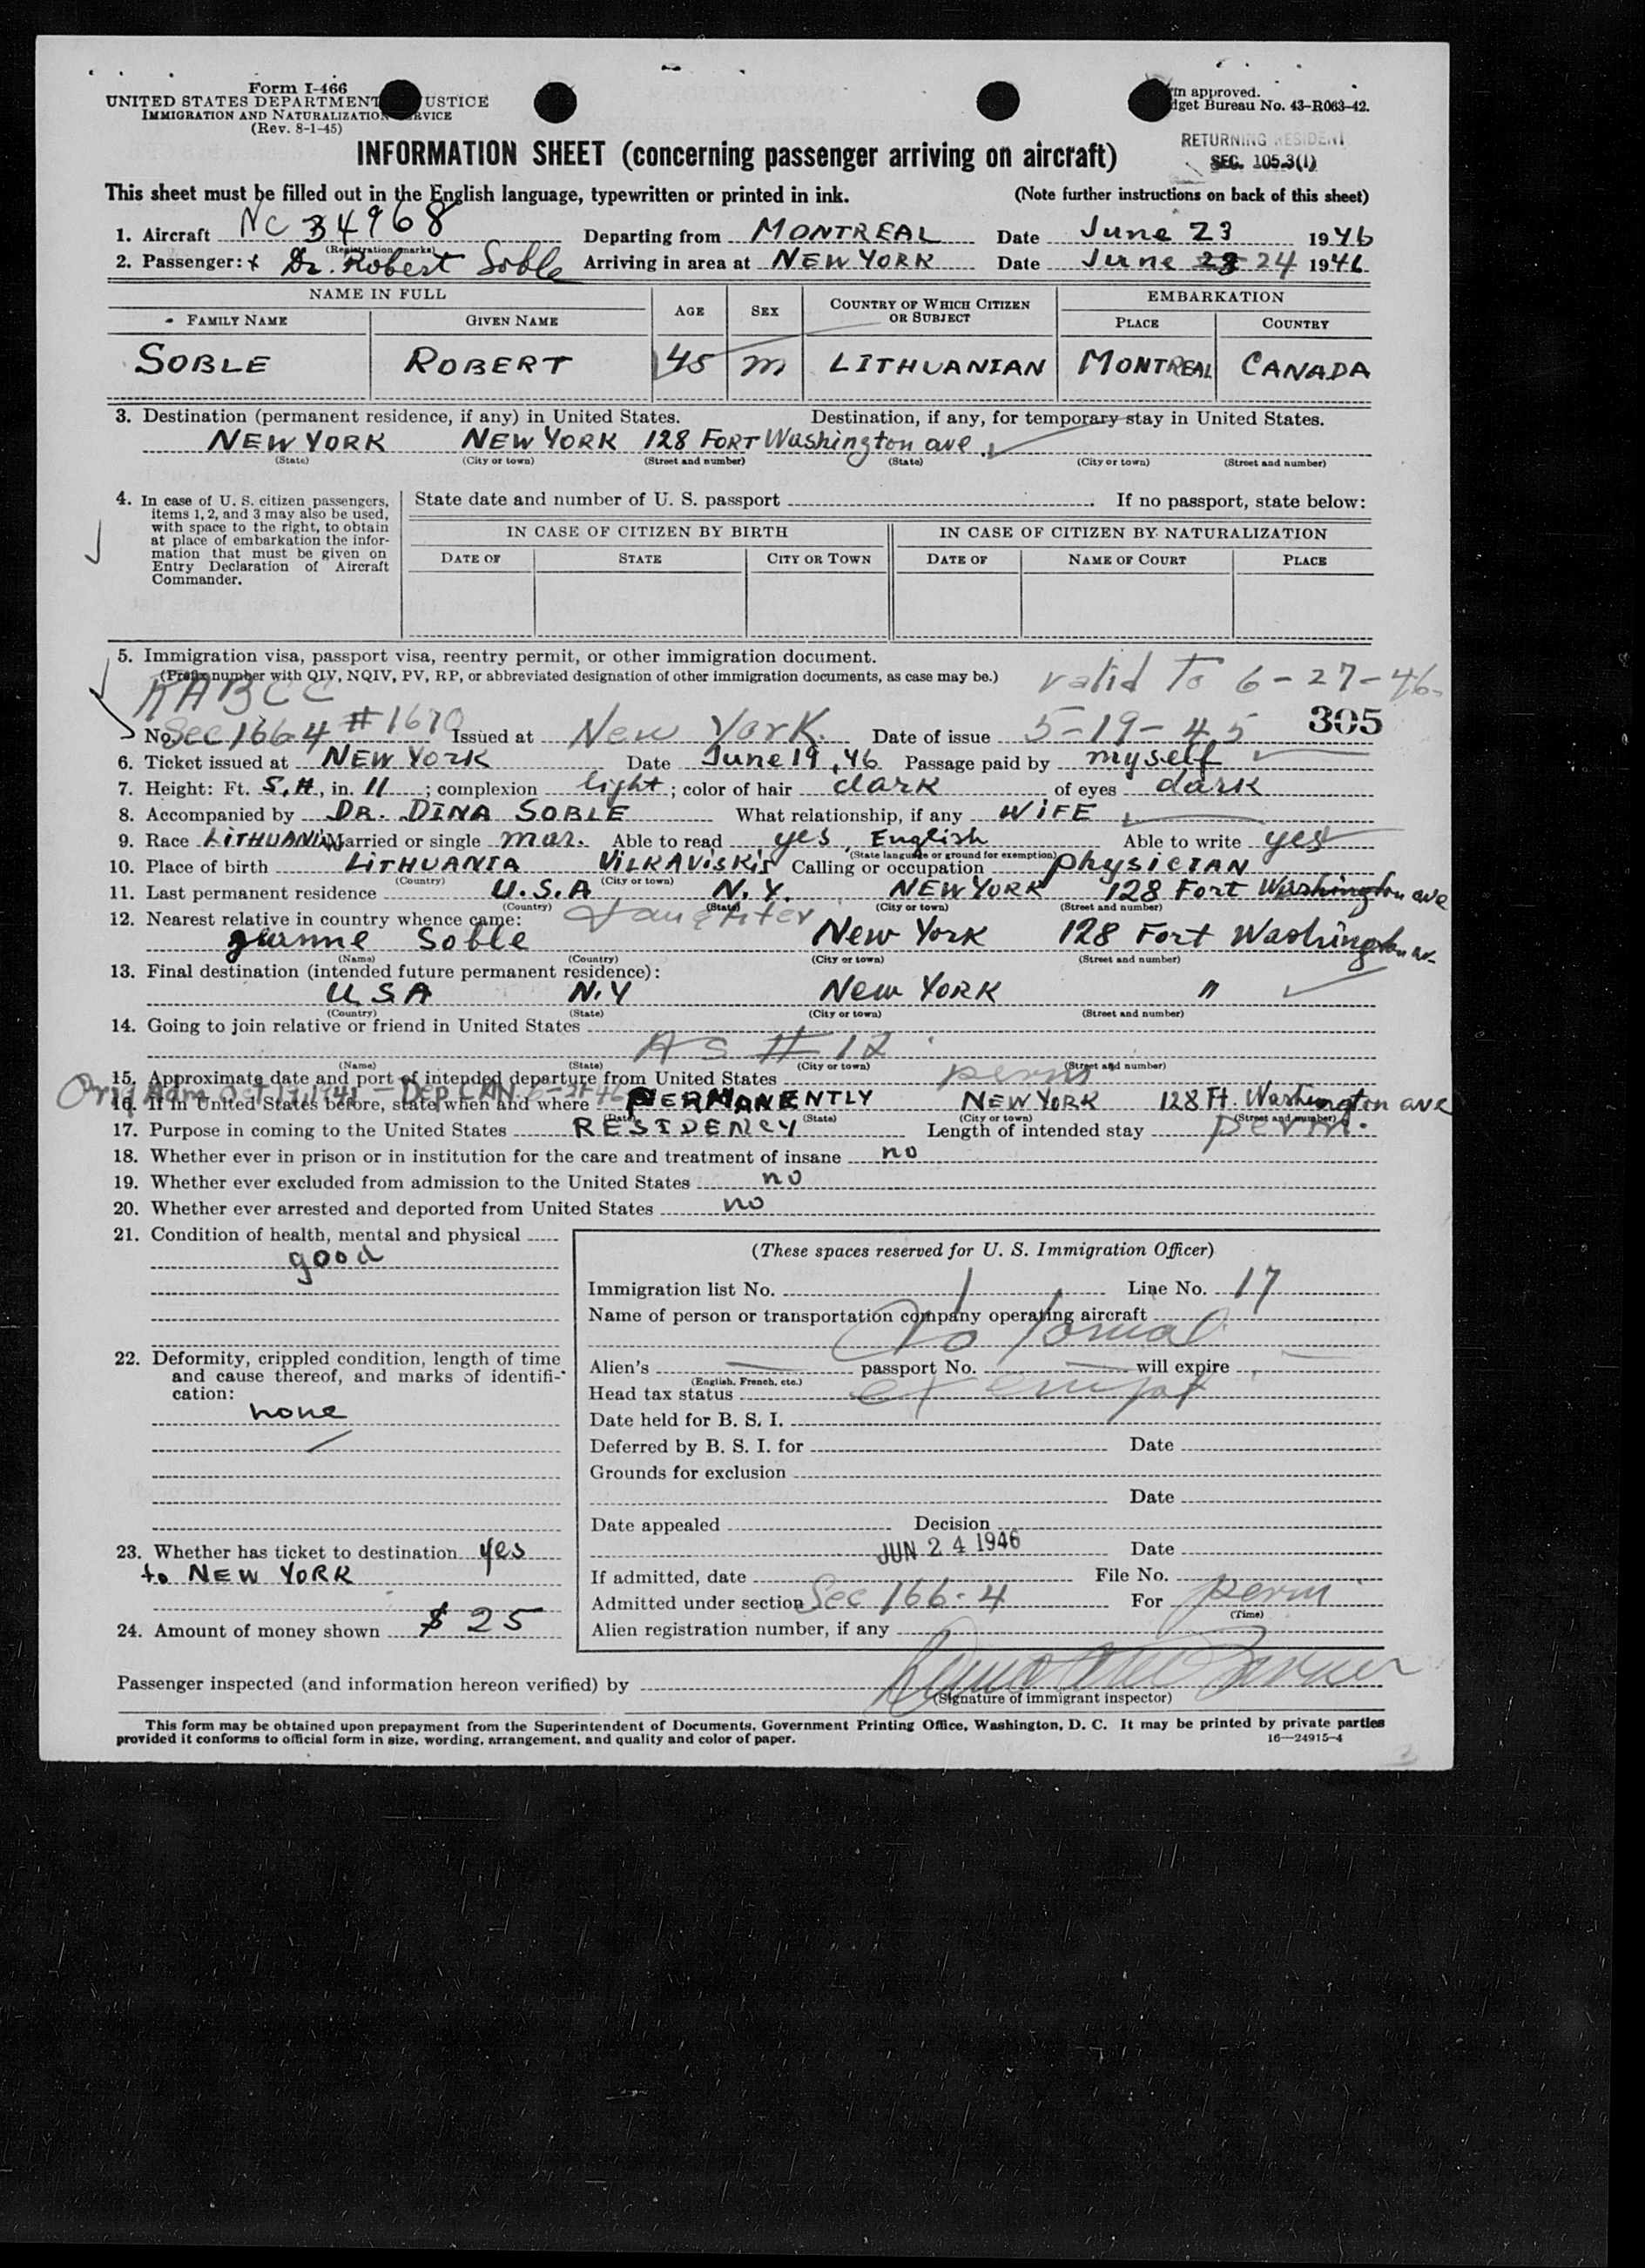 Form I-466
UNITED STATES DEPARTMENT USTICE
IMMIGRATION AND NATURALIZATION RVICE
(Rev. 8-1-45)
m approved.
dget Bureau No. 43-R063-42.
RETURNING RESIDENT
SEC. 105.3(1)
INFORMATION SHEET (concerning passenger arriving on aircraft)
This sheet must be filled out in the English language, typewritten or printed in ink. (Note further instructions on back of this sheet)
1. Aircraft NC 34968 Departing from MONTREAL Date June 23 1946
(Registration marks)
2. Passenger: x Dr. Robert Soble Arriving in area at NEW YORK Date June 23 24 1946
NAME IN FULL AGE SEX COUNTRY OF WHICH CITIZEN OR SUBJECT EMBARKATION
FAMILY NAME GIVEN NAME PLACE COUNTRY
SOBLE ROBERT 45 m LITHUANIAN MONTREAL CANADA
3. Destination (permanent residence, if any) in United States. Destination, if any, for temporary stay in United States.
NEW YORK NEW YORK 128 FORT Washington ave.
(State) (City or town) (Street and number) (State) (City or town) (Street and number)
4. In case of U. S. citizen passengers, items 1, 2, and 3 may also be used, with space to the right, to obtain at place of embarkation the information that must be given on Entry Declaration of Aircraft Commander.
State date and number of U. S. passport If no passport, state below:
IN CASE OF CITIZEN BY BIRTH IN CASE OF CITIZEN BY NATURALIZATION
DATE OF STATE CITY OR TOWN DATE OF NAME OF COURT PLACE
5. Immigration visa, passport visa, reentry permit, or other immigration document.
(Prefix number with QIV, NQIV, PV, RP, or abbreviated designation of other immigration documents, as case may be.) valid to 6-27-46
RABCC
No. Sec 166-4 #1670 Issued at New York. Date of issue 5-19-45 305
6. Ticket issued at NEW YORK Date June 19, 46 Passage paid by myself
7. Height: Ft. 5, in. 11 ; complexion light ; color of hair dark of eyes dark
8. Accompanied by DR. DINA SOBLE What relationship, if any WIFE
9. Race LITHUANIAN Married or single mar. Able to read yes, English Able to write yes
(State language or ground for exemption)
10. Place of birth LITHUANIA VILKAVISKIS Calling or occupation physician
(Country) (City or town)
11. Last permanent residence U.S.A N.Y. NEW YORK 128 Fort Washington ave
(Country) (State) (City or town) (Street and number)
12. Nearest relative in country whence came: daughter
Soble New York 128 Fort Washington av.
(Name) (Country) (City or town) (Street and number)
13. Final destination (intended future permanent residence):
USA N.Y New YORK "
(Country) (State) (City or town) (Street and number)
14. Going to join relative or friend in United States
AS # 12
(Name) (State) (City or town) (Street and number)
15. Approximate date and port of intended departure from United States perm
Orig Adm Oct 1941 - Dep CAN
16. If in United States before, state when and where PERMANENTLY NEW YORK 128 Ft. Washington ave
(Date) (State) (City or town) (Street and number)
17. Purpose in coming to the United States RESIDENCY Length of intended stay perm.
18. Whether ever in prison or in institution for the care and treatment of insane no
19. Whether ever excluded from admission to the United States no
20. Whether ever arrested and deported from United States no
21. Condition of health, mental and physical
good
22. Deformity, crippled condition, length of time and cause thereof, and marks of identification:
none
23. Whether has ticket to destination yes
to NEW YORK
24. Amount of money shown $ 25
(These spaces reserved for U. S. Immigration Officer)
Immigration list No. 1 Line No. 17
Name of person or transportation company operating aircraft
Colonial
Alien's passport No. will expire
(English, French, etc.)
Head tax status exempt
Date held for B. S. I.
Deferred by B. S. I. for Date
Grounds for exclusion
Date
Date appealed Decision
JUN 24 1946 Date
If admitted, date File No.
Admitted under section Sec 166-4 For perm
(Time)
Alien registration number, if any
Passenger inspected (and information hereon verified) by
(Signature of immigrant inspector)
This form may be obtained upon prepayment from the Superintendent of Documents, Government Printing Office, Washington, D. C. It may be printed by private parties
provided it conforms to official form in size, wording, arrangement, and quality and color of paper. 16—24915-4